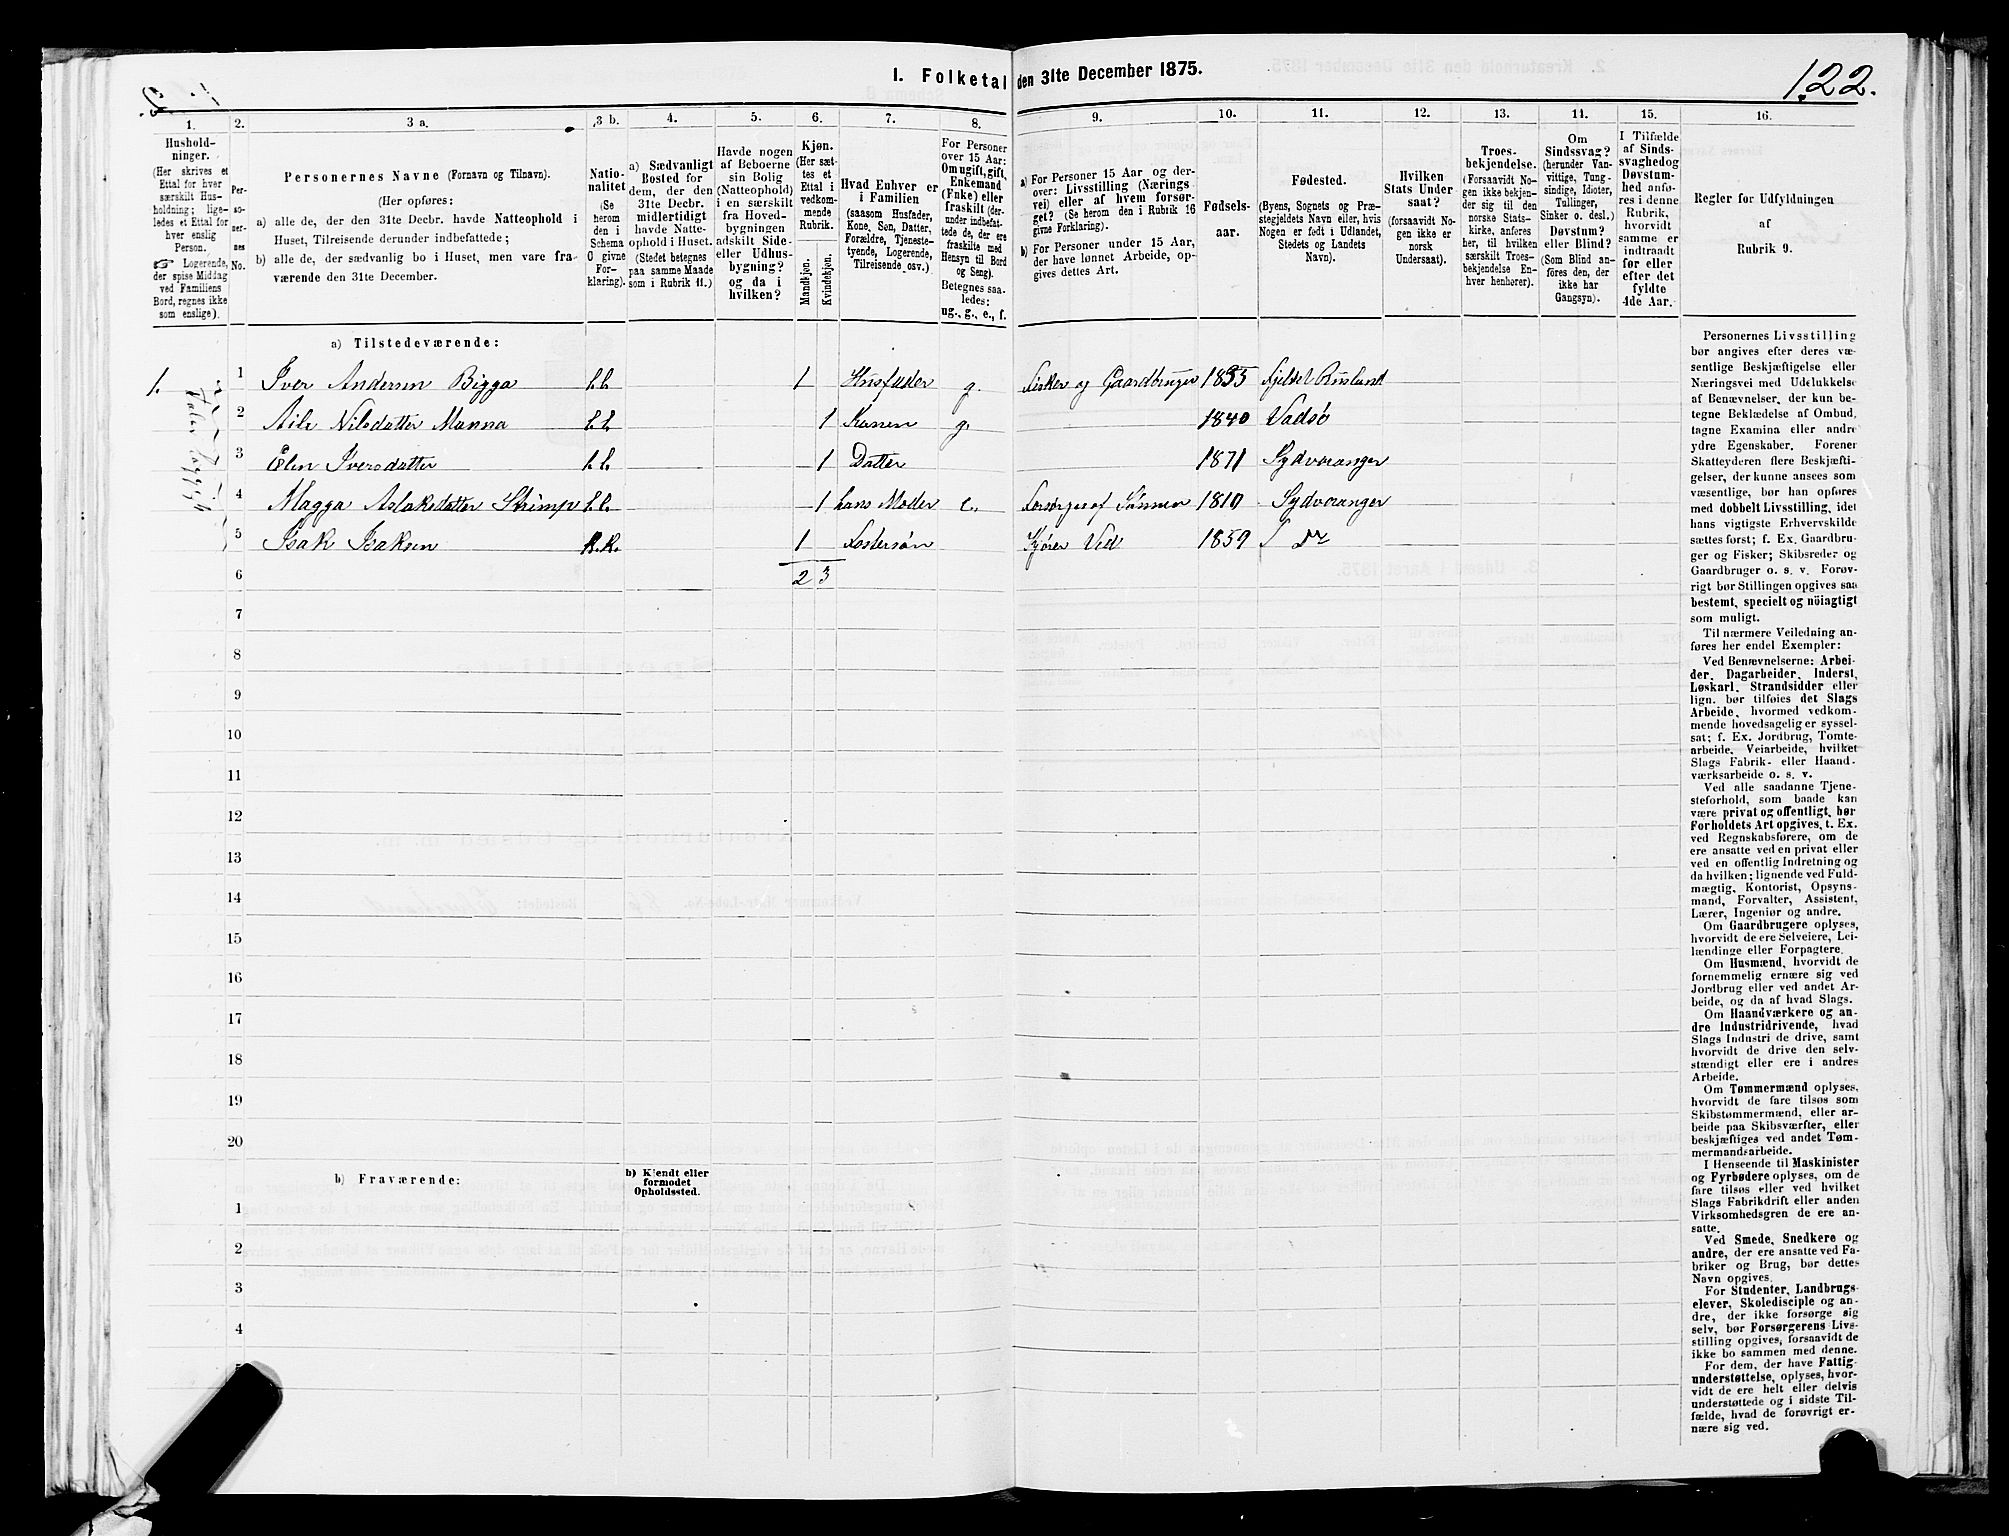 I. Folketal den 31te December 1875.
122.
1. 2. 3 a. 3 b. 4. 5. 6. 7. 8. 9. 10. 11. 12. 13. 14. 15. 16.
Hushold-
ninger.
(Her skrives et
Ettal for hver
særskilt Hus-
holdning; lige-
ledes et Ettal for
hver enslig
Person.
☞ Logerende,
der spise Middag
ved Familiens
Bord, regnes ikke
som enslige).
Per-
so-
ner-
nes
No.
Personernes Navne (Fornavn og Tilnavn).
(Her opføres:
a) alle de, der den 31te Decbr. havde Natteophold i
Huset, Tilreisende derunder indbefattede;
b) alle de, der sædvanlig bo i Huset, men vare fra-
værende den 31te December.
Natio-
nalitet
(Se
herom
den i
Schema
O givne
For-
klaring).
a) Sædvanligt
Bosted for
dem, der den
31te Decbr.
midlertidigt
havde Natte-
ophold i Huset.
(Stedet betegnes
paa samme Maade
som i Rubrik 11.)
Havde nogen
af Beboerne
sin Bolig
(Natteophold)
i en særskilt
fra Hoved-
bygningen
adskilt Side-
eller Udhus-
bygning?
og da i
hvilken?
Kjøn.
(Her sæt-
tes et
Ettal i
vedkom-
mende
Rubrik.
Mandkjøn.
Kvindekjøn.
Hvad Enhver er
i Familien
(saasom Husfader,
Kone, Søn, Datter,
Forældre, Tjeneste-
tyende, Logerende,
Tilreisende osv.)
For Personer
over 15 Aar:
Om ugift, gift,
Enkemand
(Enke) eller
fraskilt (der-
under indbefat-
tede de, der ere
fraskilte med
Hensyn til Bord
og Seng).
Betegnes saa-
ledes:
ug., g., e., f.
a) For Personer 15 Aar og der-
over: Livsstilling (Nærings-
vei) eller af hvem forsør-
get? (Se herom den i Rubrik 16
givne Forklaring).
b) For Personer under 15 Aar,
der have lønnet Arbeide, op-
gives dettes Art.
Fødsels-
aar.
Fødested.
(Byens, Sognets og Præ-
stegjeldets Navn eller, hvis
Nogen er født i Udlandet,
Stedets og Landets
Navn).
Hvilken
Stats Under-
saat?
(forsaavidt No-
gen ikke er
norsk
Undersaat).
Troes-
bekjendelse.
(Forsaavidt No-
gen ikke bekjen-
der sig til den
norske Stats-
kirke, anføres
her, til hvilken
særskilt Troes-
bekjendelse En-
hver henhører).
Om
Sindssvag?
(herunder Van-
vittige, Tung-
sindige, Idioter,
Tullinger,
Sinker o. desl.)
Døvstum?
eller Blind?
(Som Blind an-
føres den, der
ikke har
Gangsyn).
I Tilfælde
af Sinds-
svaghed og
Døvstum-
hed anfø-
res i denne
Rubrik,
hvorvidt
samme er
indtraadt
før eller
efter det
fyldte
4de Aar.
Regler for Udfyldningen
af
Rubrik 9.
a) Tilstedeværende:
1. 1 Iver Andersen Bigga l.l. 1 Husfader g. Fisker og Gaardbruger 1835 Fjeldet Rusland
2 Aile Nilsdatter Manna l.l. 1 Konen g. 1840 Vadsø
3 Elen Iversdatter l.l. 1 Datter 1871 Sydvaranger
4 Magga Aslaksdatter l.l. 1 hans Moder e. Forsørges af Sønnen 1810 Sydvaranger
5 Isak Isaksen k.k. 1 Fostersøn Kjører Ved 1859
6 2 3
7
8
9
10
11
12
13
14
15
16
17
18
19
20
b) Fraværende:
b) Kjendt eller
formodet
Opholdssted.
1
2
3
4
Personernes Livsstilling
bør angives efter deres væ-
sentlige Beskjæftigelse eller
Næringsvei med Udelukkelse
af Benævnelser, der kun be-
tegne Beklædelse af Ombud,
tagne Examina eller andre
ydre Egenskaber. Forener
Skatteyderen flere Beskjæfti-
gelser, der kunne ansees som
væsentlige, bør han opføres
med dobbelt Livsstilling, idet
hans vigtigste Erhvervskilde
sættes først; f. Ex. Gaardbru-
ger og Fisker; Skibsreder og
Gaardbruger o. s. v. Forøv-
rigt bør Stillingen opgives saa
bestemt, specielt og nöiagtigt
som muligt.
Til nærmere Veiledning an-
føres her endel Exempler:
Ved Benævnelserne: Arbei-
der, Dagarbeider, Inderst,
Løskarl, Strandsidder eller
lign. bør tilføies det Slags
Arbeide, hvormed vedkom-
mende hovedsagelig er syssel-
sat; f. Ex. Jordbrug, Tomte-
arbeide, Veiarbeide, hvilket
Slags Fabrik- eller Haand-
værksarbeide o. s. v.
Ved alle saadanne Tjene-
steforhold, som baade kan
være privat og offentligt, bør
Forholdets Art opgives, t. Ex.
ved Regnskabsførere, om de
ere ansatte ved en privat eller
ved en offentlig Indretning og
da hvilken; lignende ved Fuld-
mægtig, Kontorist, Opsyns-
mand, Forvalter, Assistent,
Lærer, Ingeniør og andre.
Om Gaardbrugere oplyses,
hvorvidt de ere Selveiere, Lei-
lændinge eller Forpagtere.
Om Husmænd, hvorvidt de
fornemmelig ernære sig ved
Jordbrug eller ved andet Ar-
beide, og da af hvad Slags.
Om Haandværkere og an-
dre Industridrivende, hvad
Slags Industri de drive, samt
hvorvidt de drive den selv-
stændigt eller ere i andres
Arbeide.
Om Tømmermænd oplyses,
hvorvidt de fare tilsøs som
Skibstømmermænd, eller ar-
beide paa Skibsværfter, eller
beskjæftiges ved andet Tøm-
mermandsarbeide.
I Henseende til Maskinister
og Fyrbødere oplyses, om de
fare tilsøs eller ved hvilket
Slags Fabrikdrift eller anden
Virksomhedsgren de ere an-
satte.
Ved Smede, Snedkere og
andre, der ere ansatte ved Fa-
briker og Brug, bør dettes
Navn opgives.
For Studenter, Landbrugs-
elever, Skoledisciple og an-
dre, der ikke forsørge sig
selv, bør Forsørgerens Livs-
stilling opgives, forsaavidt de
ikke bo sammen med denne.
For dem, der have Fattig-
understøttelse, oplyses, hvor-
vidt de ere helt eller delvis
understøttede og i sidste Til-
fælde, hvad de forøvrigt er-
nære sig ved.